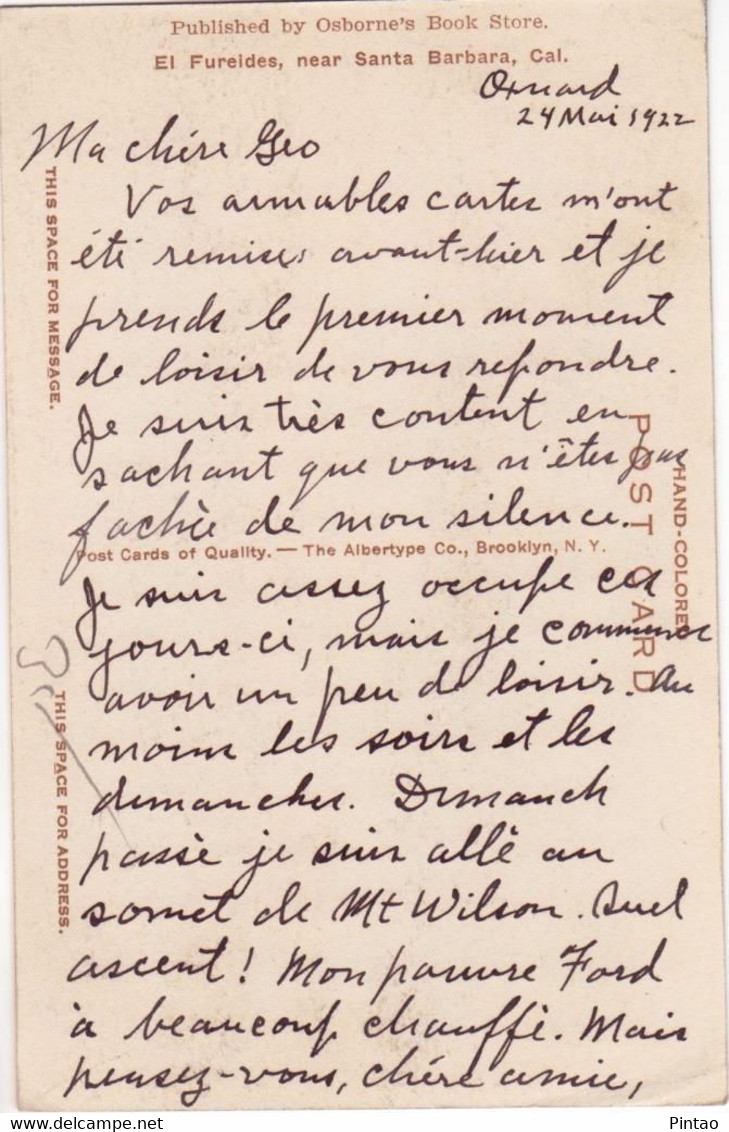 Published by Osborne's Book Store.
El Fureides, near Santa Barbara, Cal.
Oxnard
24 Mai 1922
Ma chére Geo
Vos aimables cartes m'ont
été remises avant-hier et je
prends le premier moment
de loisir de vous repondre.
Je suis très content en
sachant que vous n'êtes pas
fachée de mon silence.
Post Cards of Quality. — The Albertype Co., Brooklyn, N. Y.
Je suis assez occupe ces
jours-ci, mais je commence
avoir un peu de loisir. Au
moins les soirs et les
dimanches. Dimanch
passè je suis allé au
somet de Mt Wilson. Quel
ascent! Mon pauvre Ford
à beaucoup chauffè. Mais
pensez-vous, chére amie,
THIS SPACE FOR MESSAGE.
THIS SPACE FOR ADDRESS.
POST CARD
HAND-COLORED
Pintao